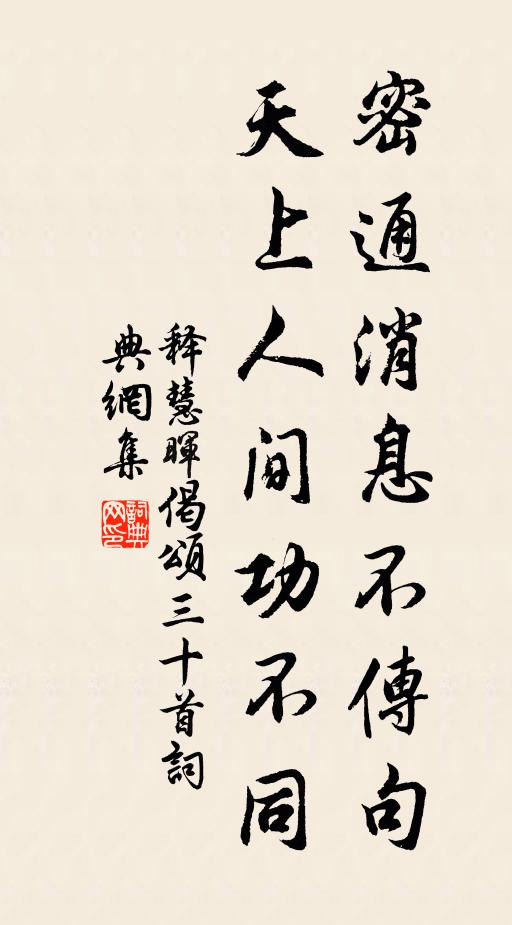 密通消息不傳句
天上人间功不同
释慧暉偈頌三十首詞
典網集
詞典网印